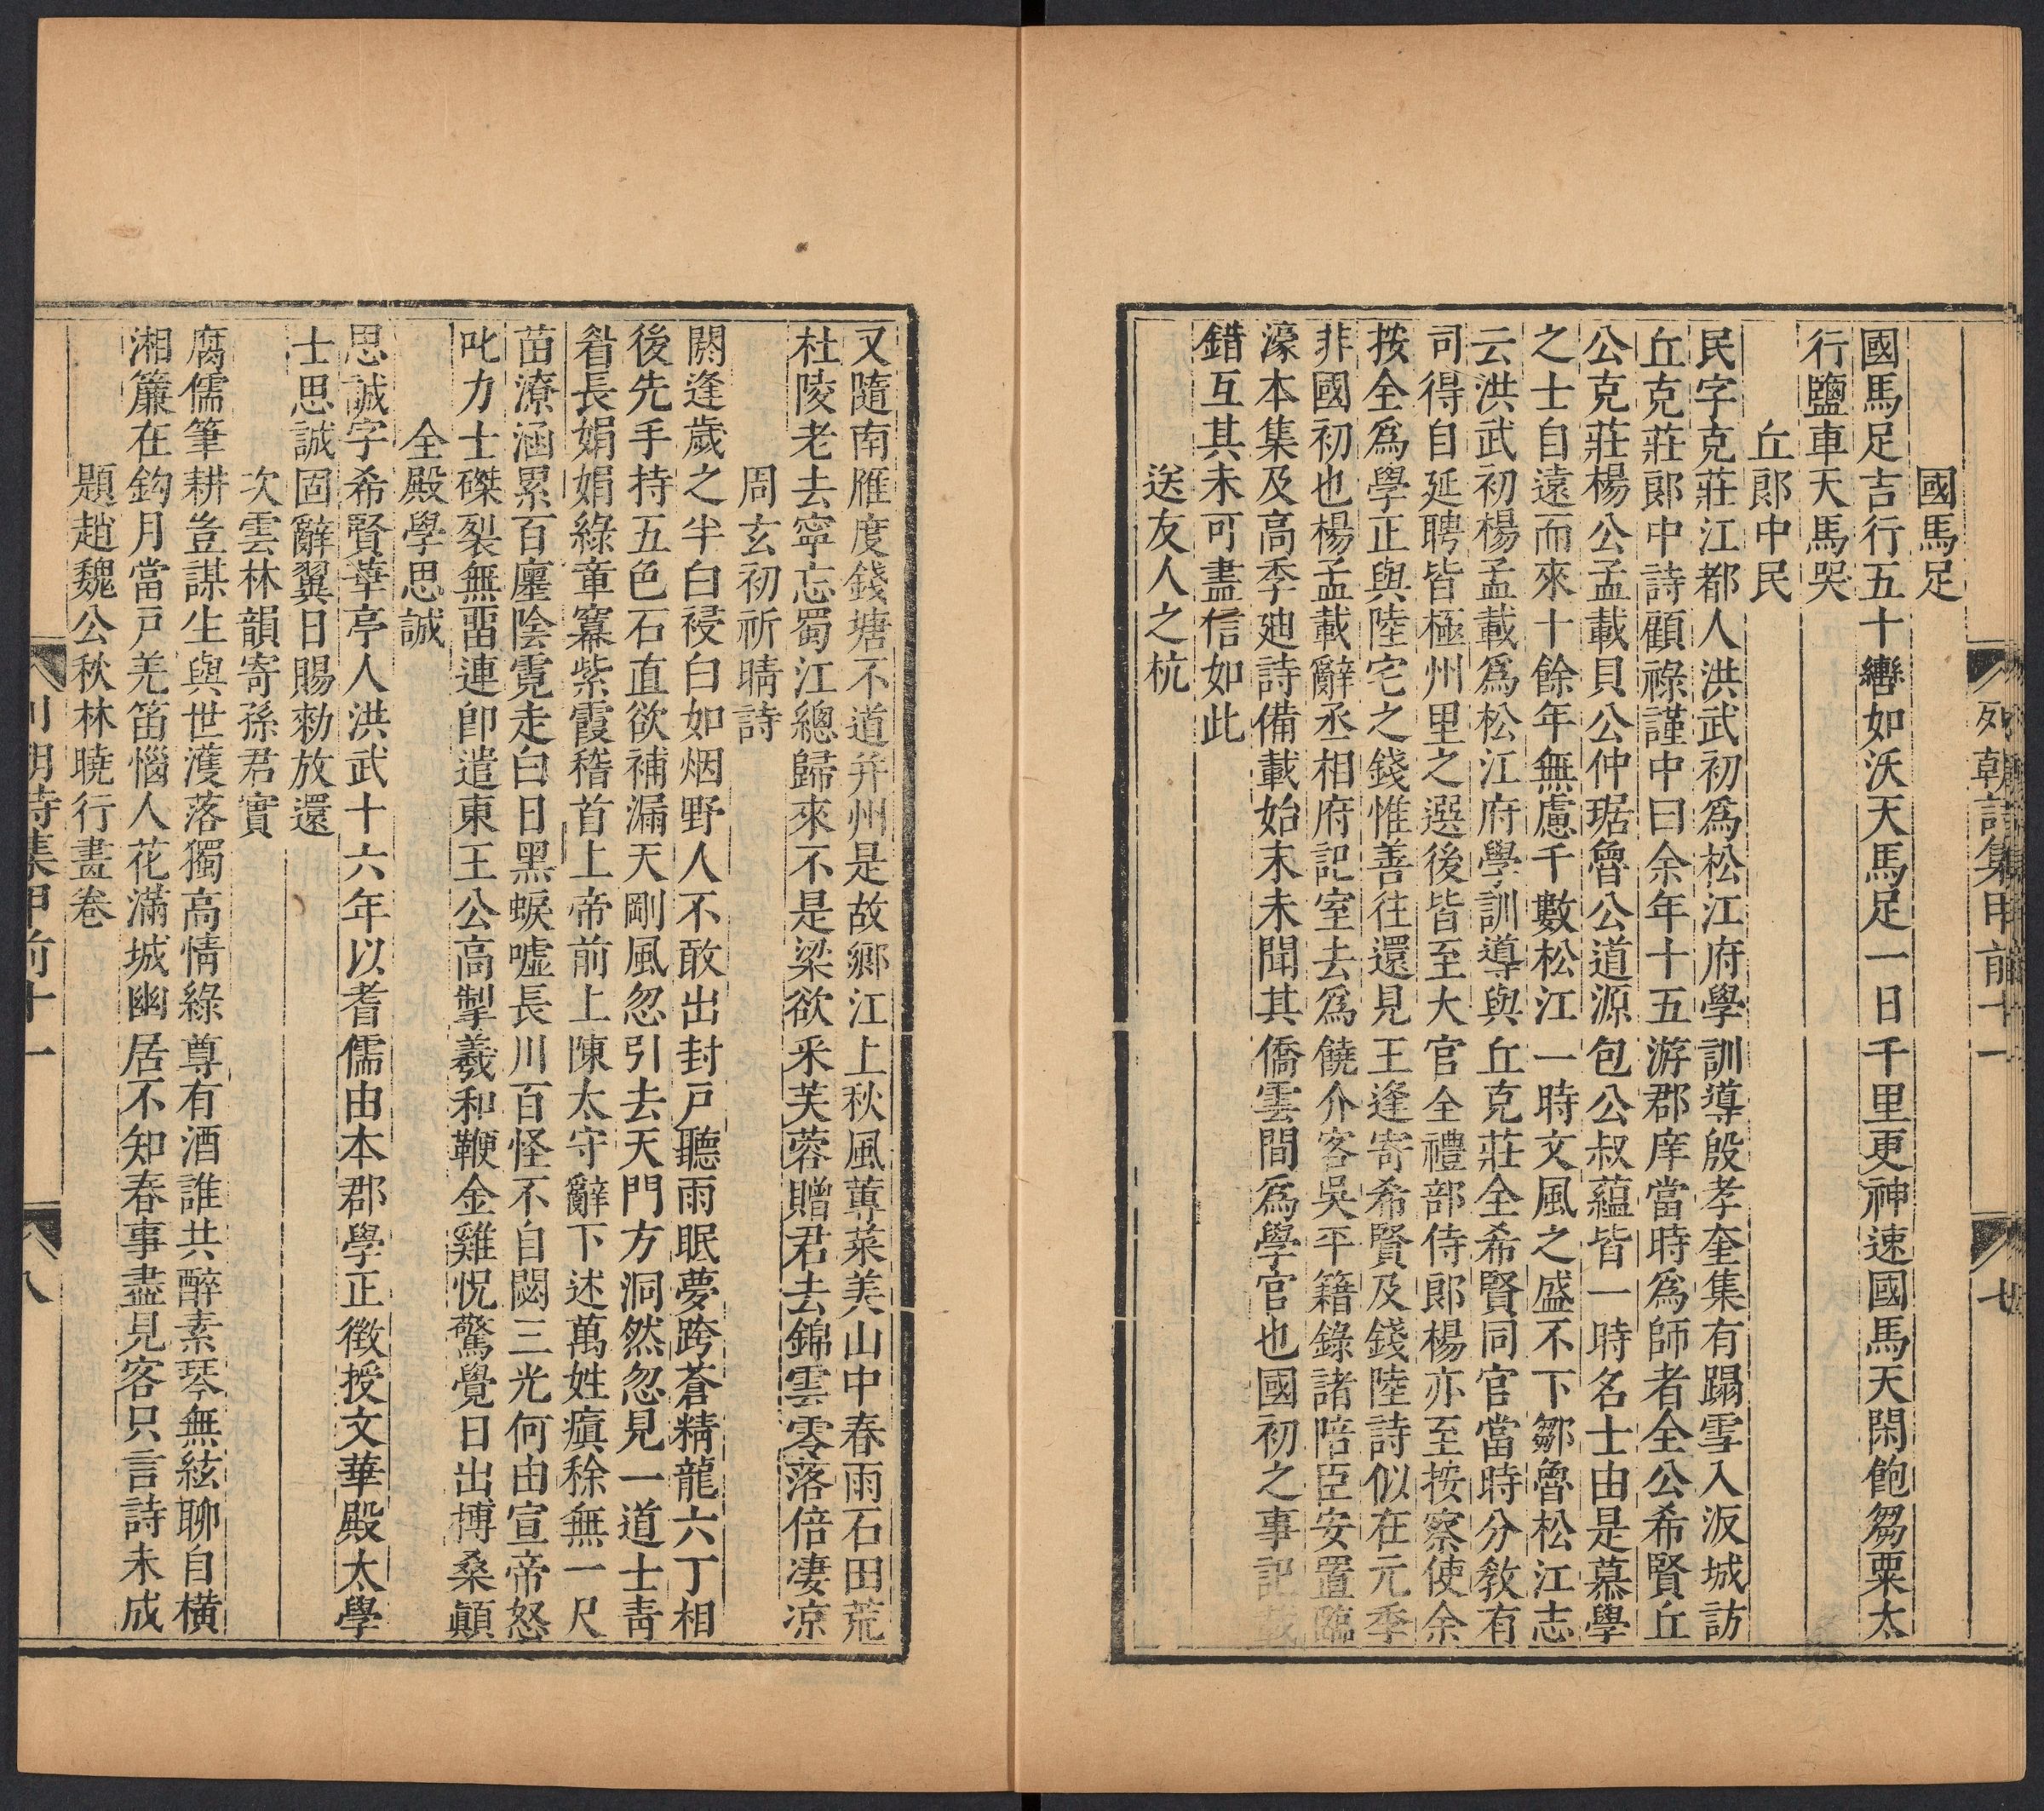 列朝詩集甲前十一 七
國馬足
國馬足吉行五十轡如沃天馬足一日千里更神速國馬天閑飽芻粟太
行鹽車天馬哭
丘郎中民
民字克莊江都人洪武初爲松江府學訓導殷孝奎集有蹋雪入汳城訪
丘克莊郎中詩顧祿謹中曰余年十五游郡庠當時爲師者全公希賢丘
公克莊楊公孟載貝公仲琚魯公道源包公叔蘊皆一時名士由是慕學
之士自遠而來十餘年無慮千數松江一時文風之盛不下鄒魯松江志
云洪武初楊孟載爲松江府學訓導與丘克莊全希賢同官當時分敎有
司得自延聘皆極州里之選後皆至大官全禮部侍郎楊亦至按察使余
按全爲學正與陸宅之錢惟善往還見王逢寄希賢及錢陸詩似在元季
非國初也楊孟載辭丞相府記室去爲饒介客吳平籍錄諸陪臣安置臨
濠本集及高季廸詩備載始末未聞其僑雲間爲學官也國初之事記載
錯互其未可盡信如此
送友人之杭
又隨南雁度錢塘不道并州是故鄉江上秋風蓴菜美山中春雨石田荒
杜陵老去寧忘蜀江總歸來不是梁欲釆芙蓉贈君去錦雲零落倍凄凉
周玄初祈晴詩
閼逢歲之半白祲白如烟野人不敢出封戸聽雨眠夢跨蒼精龍六丁相
後先手持五色石直欲補漏天剛風忽引去天門方洞然忽見一道士靑
眢長娟娟綠章冪紫霞稽首上帝前上陳太守辭下述萬姓瘨稌無一尺
苗潦涵累百廛陰霓走白日黑蜧噓長川百怪不自閟三光何由宣帝怒
叱力士磔裂無畱連卽遣東王公高掣羲和鞭金雞怳驚覺日出榑桑顚
全殿學思誠
思誠字希賢華亭人洪武十六年以耆儒由本郡學正徵授文華殿太學
士思誠固辭翼日賜勑放還
次雲林韻寄孫君實
腐儒筆耕豈謀生與世濩落獨高情綠尊有酒誰共醉素琴無絃聊自橫
湘簾在鈎月當戸羌笛惱人花滿城幽居不知春事盡見客只言詩未成
題趙魏公秋林曉行畫卷
列朝詩集甲前十一 八